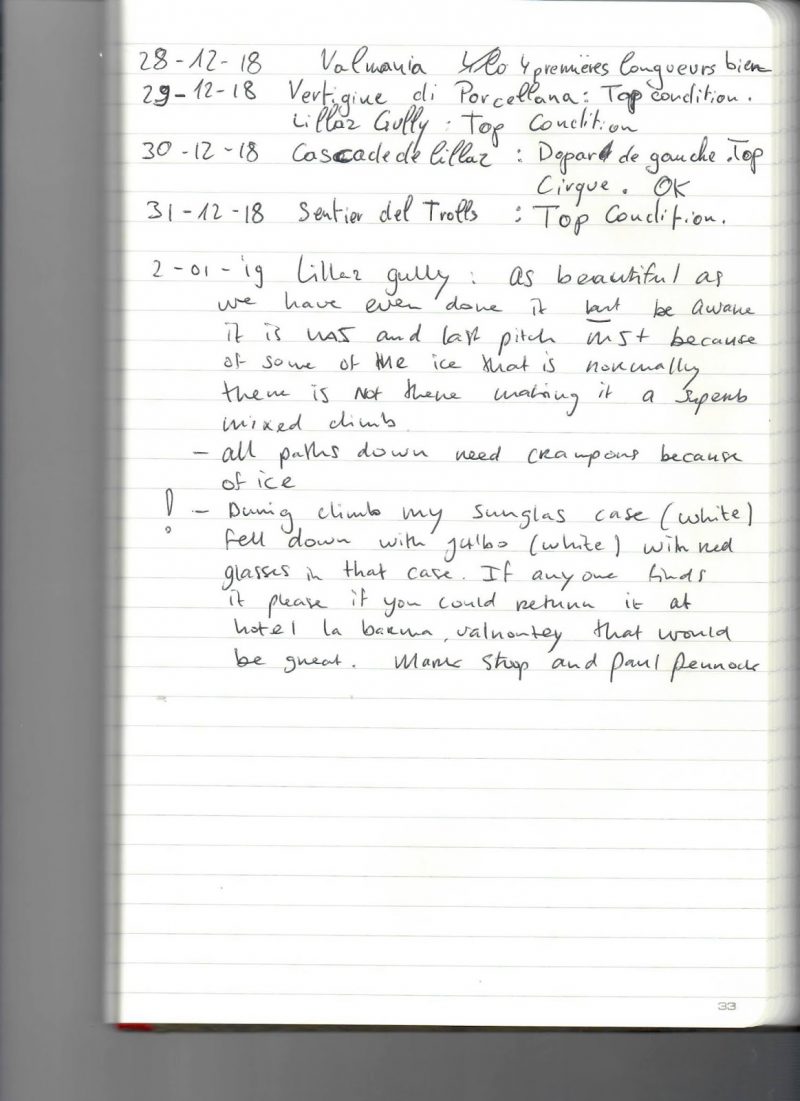 28-12-18 Valmania 4 premières longueurs bien
29-12-18 Vertigine di Porcellana: Top condition.
Lillaz Gully: Top Condition
30-12-18 Cascade de lillaz: Depart de gauche. Top
Cirque. OK
31-12-18 Sentier del Trolls: Top Condition.
2-01-19 Lillaz gully: as beautiful as
we have ever done it but be aware
it is and last pitch M5+ because
of some of the ice that is normally
there is not there making it a superb
mixed climb.
- all paths down need crampons because
of ice
! - During climb my sunglas case (white)
fell down with julbo (white) with red
glasses in that case. If anyone finds
it please if you could return it at
hotel la barma, valnontey that would
be great. Mark Stoop and Paul Pennock
33